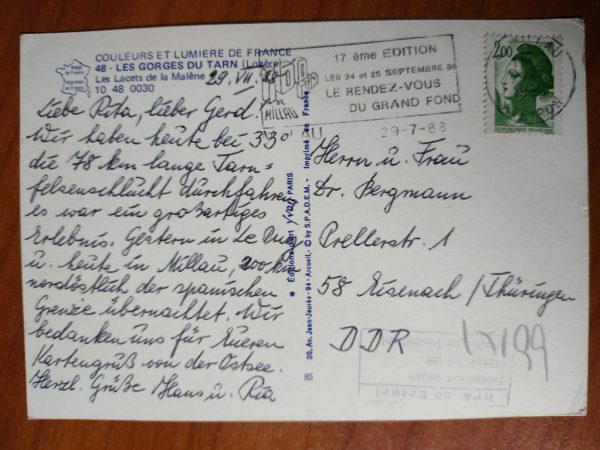 COULEURS ET LUMIERE DE FRANCE
48 - LES GORGES DU TARN (Lozère)
Les Lacets de la Malène
10 48 0030
29. VII. 88
Liebe Rita, lieber Gerd.
Wir haben heute bei 33°
die 78 km lange Tarn=
felsenschlucht durchfahren
es war ein großartiges
Erlebnis. Gestern in Le Puy
u. heute in Millau, 200 km
nordöstlich der spanischen
Grenze übernachtet. Wir
bedanken uns für Eueren
Kartengruß von der Ostsee.
Herzl. Grüße Hans u. Ria
Editions d'art Yvon PARIS
30, Av. Jean-Jaurès - 94 - Arcueil - © by S.P.A.D.E.M. - Imprimé en France
85
DE
MILLAU
17 ème EDITION
LES 24 et 25 SEPTEMBRE 88
LE RENDEZ-VOUS
DU GRAND FOND
29-7-88
2,00
REPUBLIQUE FRANÇAISE
Herrn u. Frau
Dr. Bergmann
Prellerstr. 1
58 Eisenach / Thüringen
DDR
Fehlgeleitet wegen